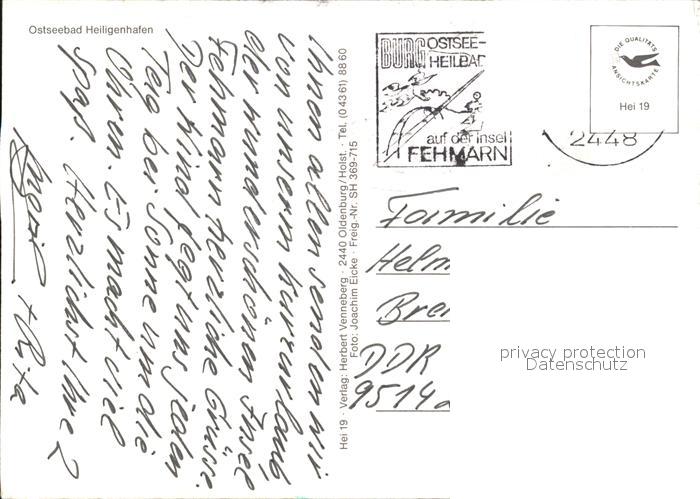 Ostseebad Heiligenhafen
Ihnen allen senden wir
von unserm Kurzurlaub
der wunderschönen Insel
Fehmarn herzliche Grüsse.
Der Wind fegt uns jeden
Tag bei Sonne um die
Ohren. Es macht viel
Spaß. Herzlichst Ihre 2
+ Rita
Hei 19 · Verlag: Herbert Venneberg · 2440 Oldenburg/Holst. · Tel. (0 43 61) 88 60
Foto: Joachim Eicke · Freig.-Nr. SH 369-715
BURG OSTSEE-
HEILBAD
auf der Insel
FEHMARN
2448
DIE QUALITÄTS
ANSICHTSKARTE
Hei 19
Familie
Helm
Bre
DDR
9514
privacy protection
Datenschutz